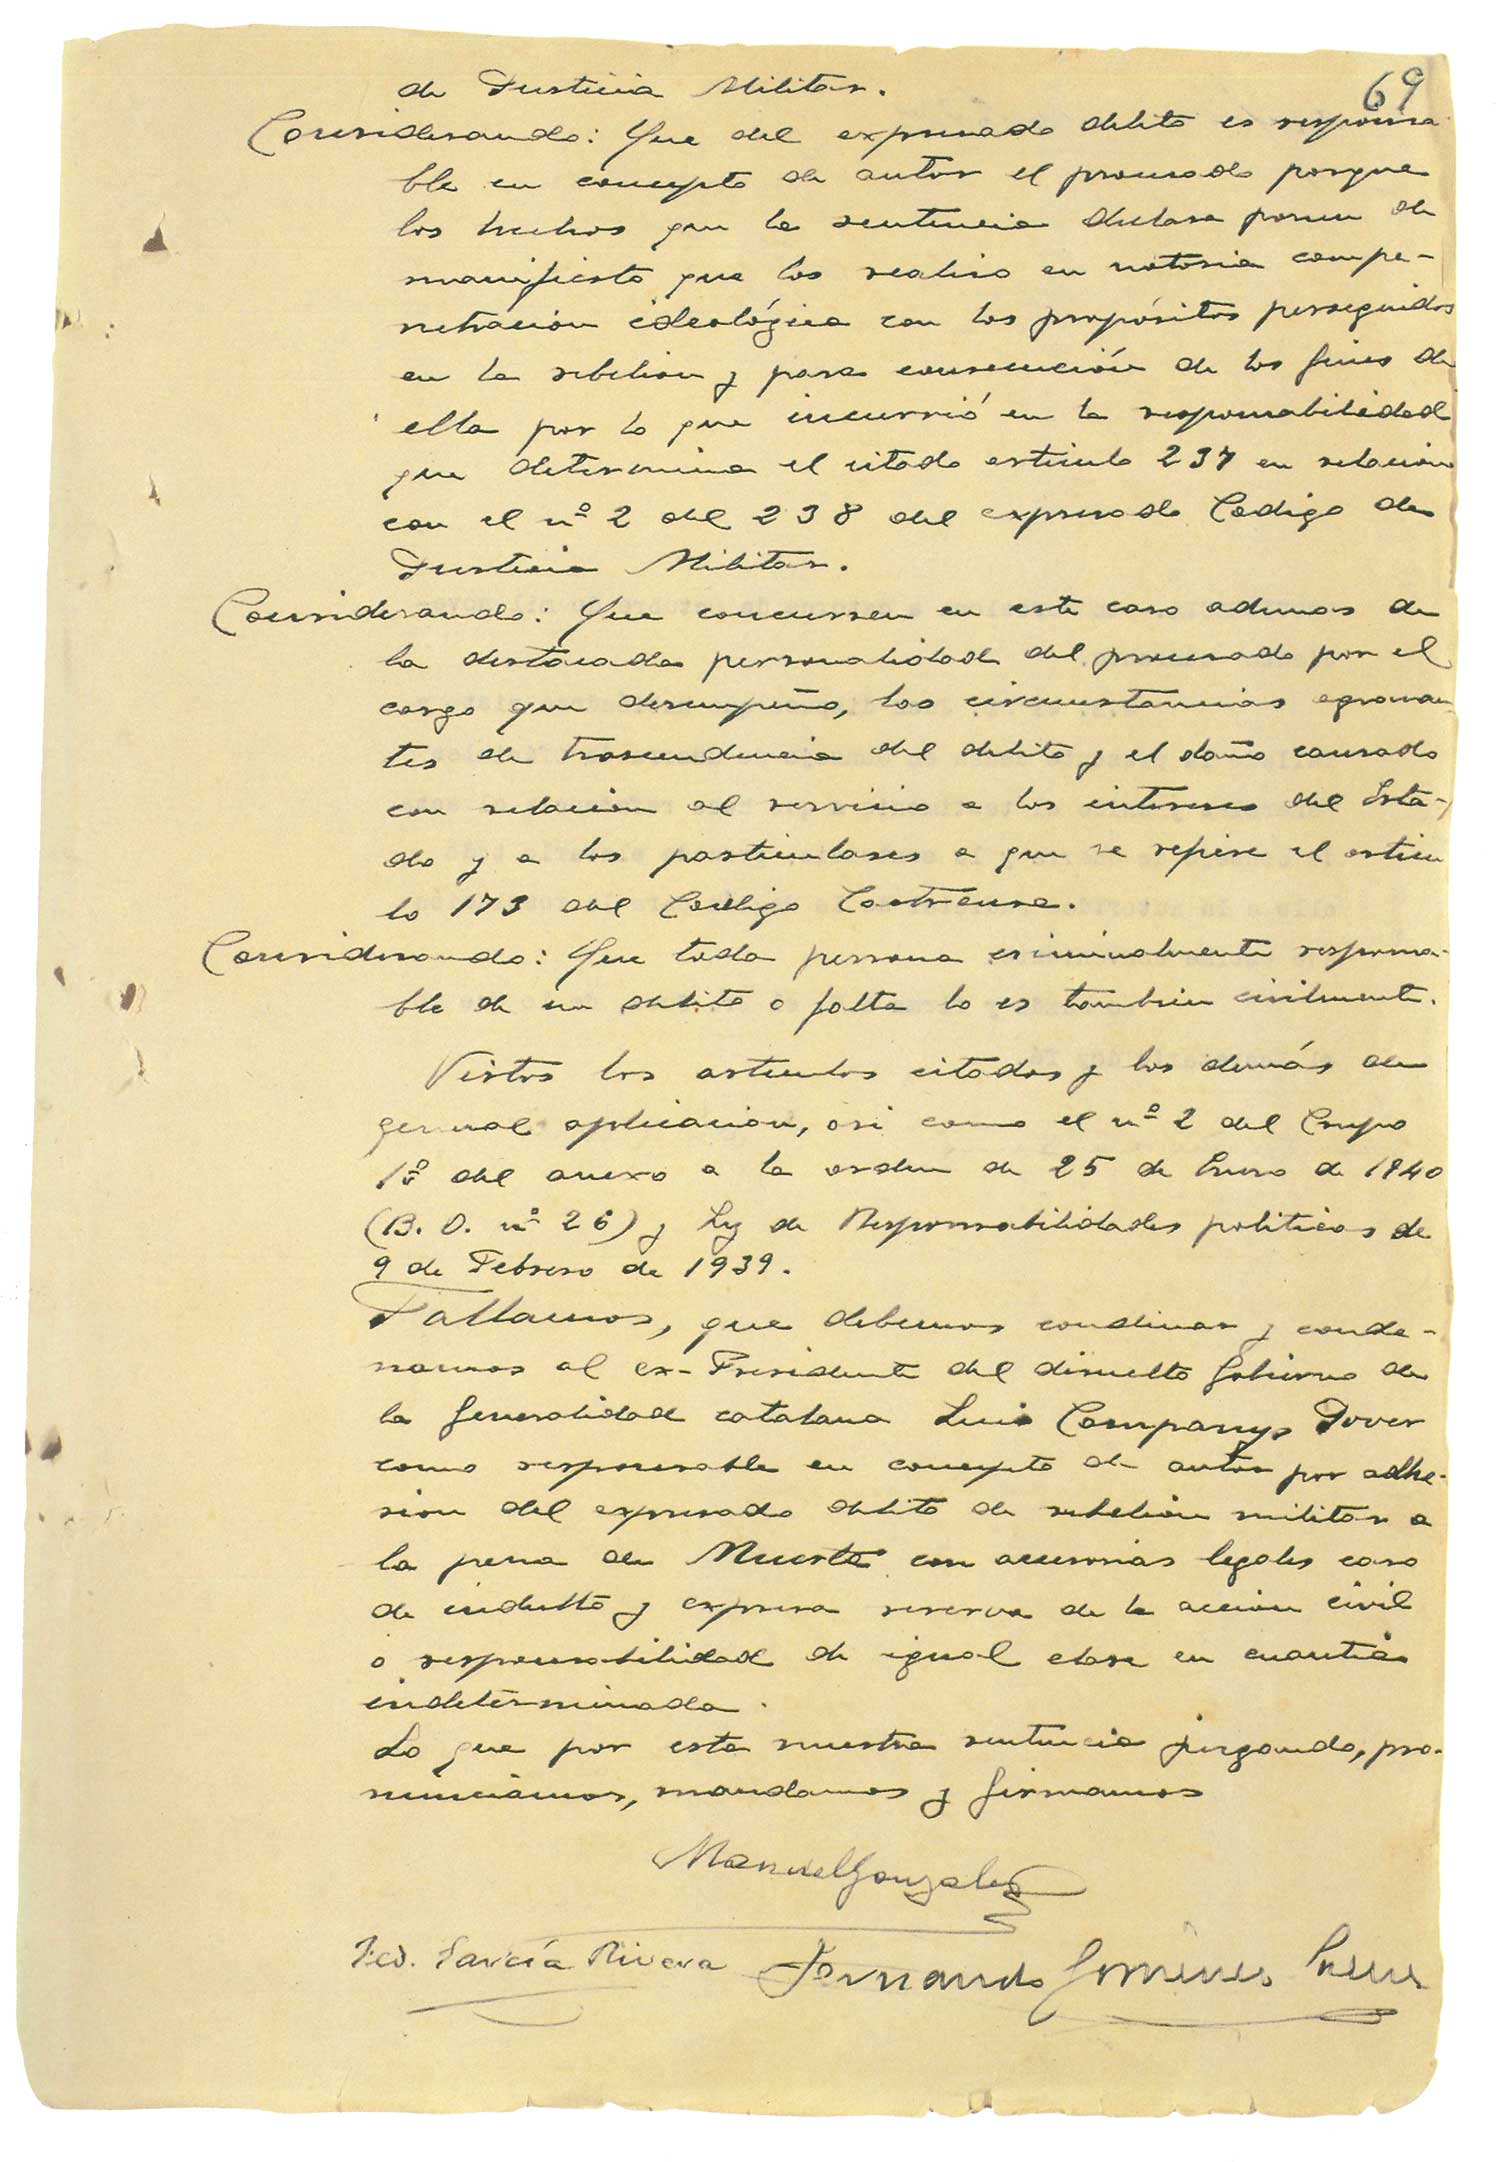 69
de Justicia Militar.
Considerando: Que del expresado delito es responsa
ble en concepto de autor el procesado porque
los hechos que la sentencia declara ponen de
manifiesto que los realizó en notoria compe-
netracion ideológica con los propósitos perseguidos
en la rebelion y para consecución de los fines de
ella por lo que incurrió en la responsabilidad
que determina el citado articulo 237 en relacion
con el nº 2 del 238 del expresado Codigo de
Justicia Militar.
Considerando: Que concurren en este caso ademas de
la destacada personalidad del procesado por el
cargo que desempeño, las circunstancias agravan
tes de trascendencia del delito y el daño causado
con relacion al servicio a los intereses del Esta-
do y a los particulares a que se refiere el articu
lo 173 del Codigo Castrense.
Considerando: Que toda persona criminalmente responsa-
ble de un delito o falta lo es tambien civilmente.
Vistos los articulos citados y los demás de
general aplicacion, asi como el nº 2 del Grupo
1º del anexo a la orden de 25 de Enero de 1940
(B. O. nº 26) y Ley de Responsabilidades politicas de
9 de Febrero de 1939.
Fallamos, que debemos condenar y conde-
namos al ex-Presidente del disuelto Gobierno de
la Generalidad catalana Luis Companys Jover
como responsable en concepto de autor por adhe-
sion del expresado delito de rebelion militar a
la pena de Muerte con accesorias legales caso
de indulto y expresa reserva de la accion civil
o responsabilidad de igual clase en cuantia
indeterminada.
Lo que por esta nuestra sentencia juzgando, pro-
nunciamos, mandamos y firmamos
Manuel Gonzalez
Fed. García Rivera Fernando Gimenez Saenz